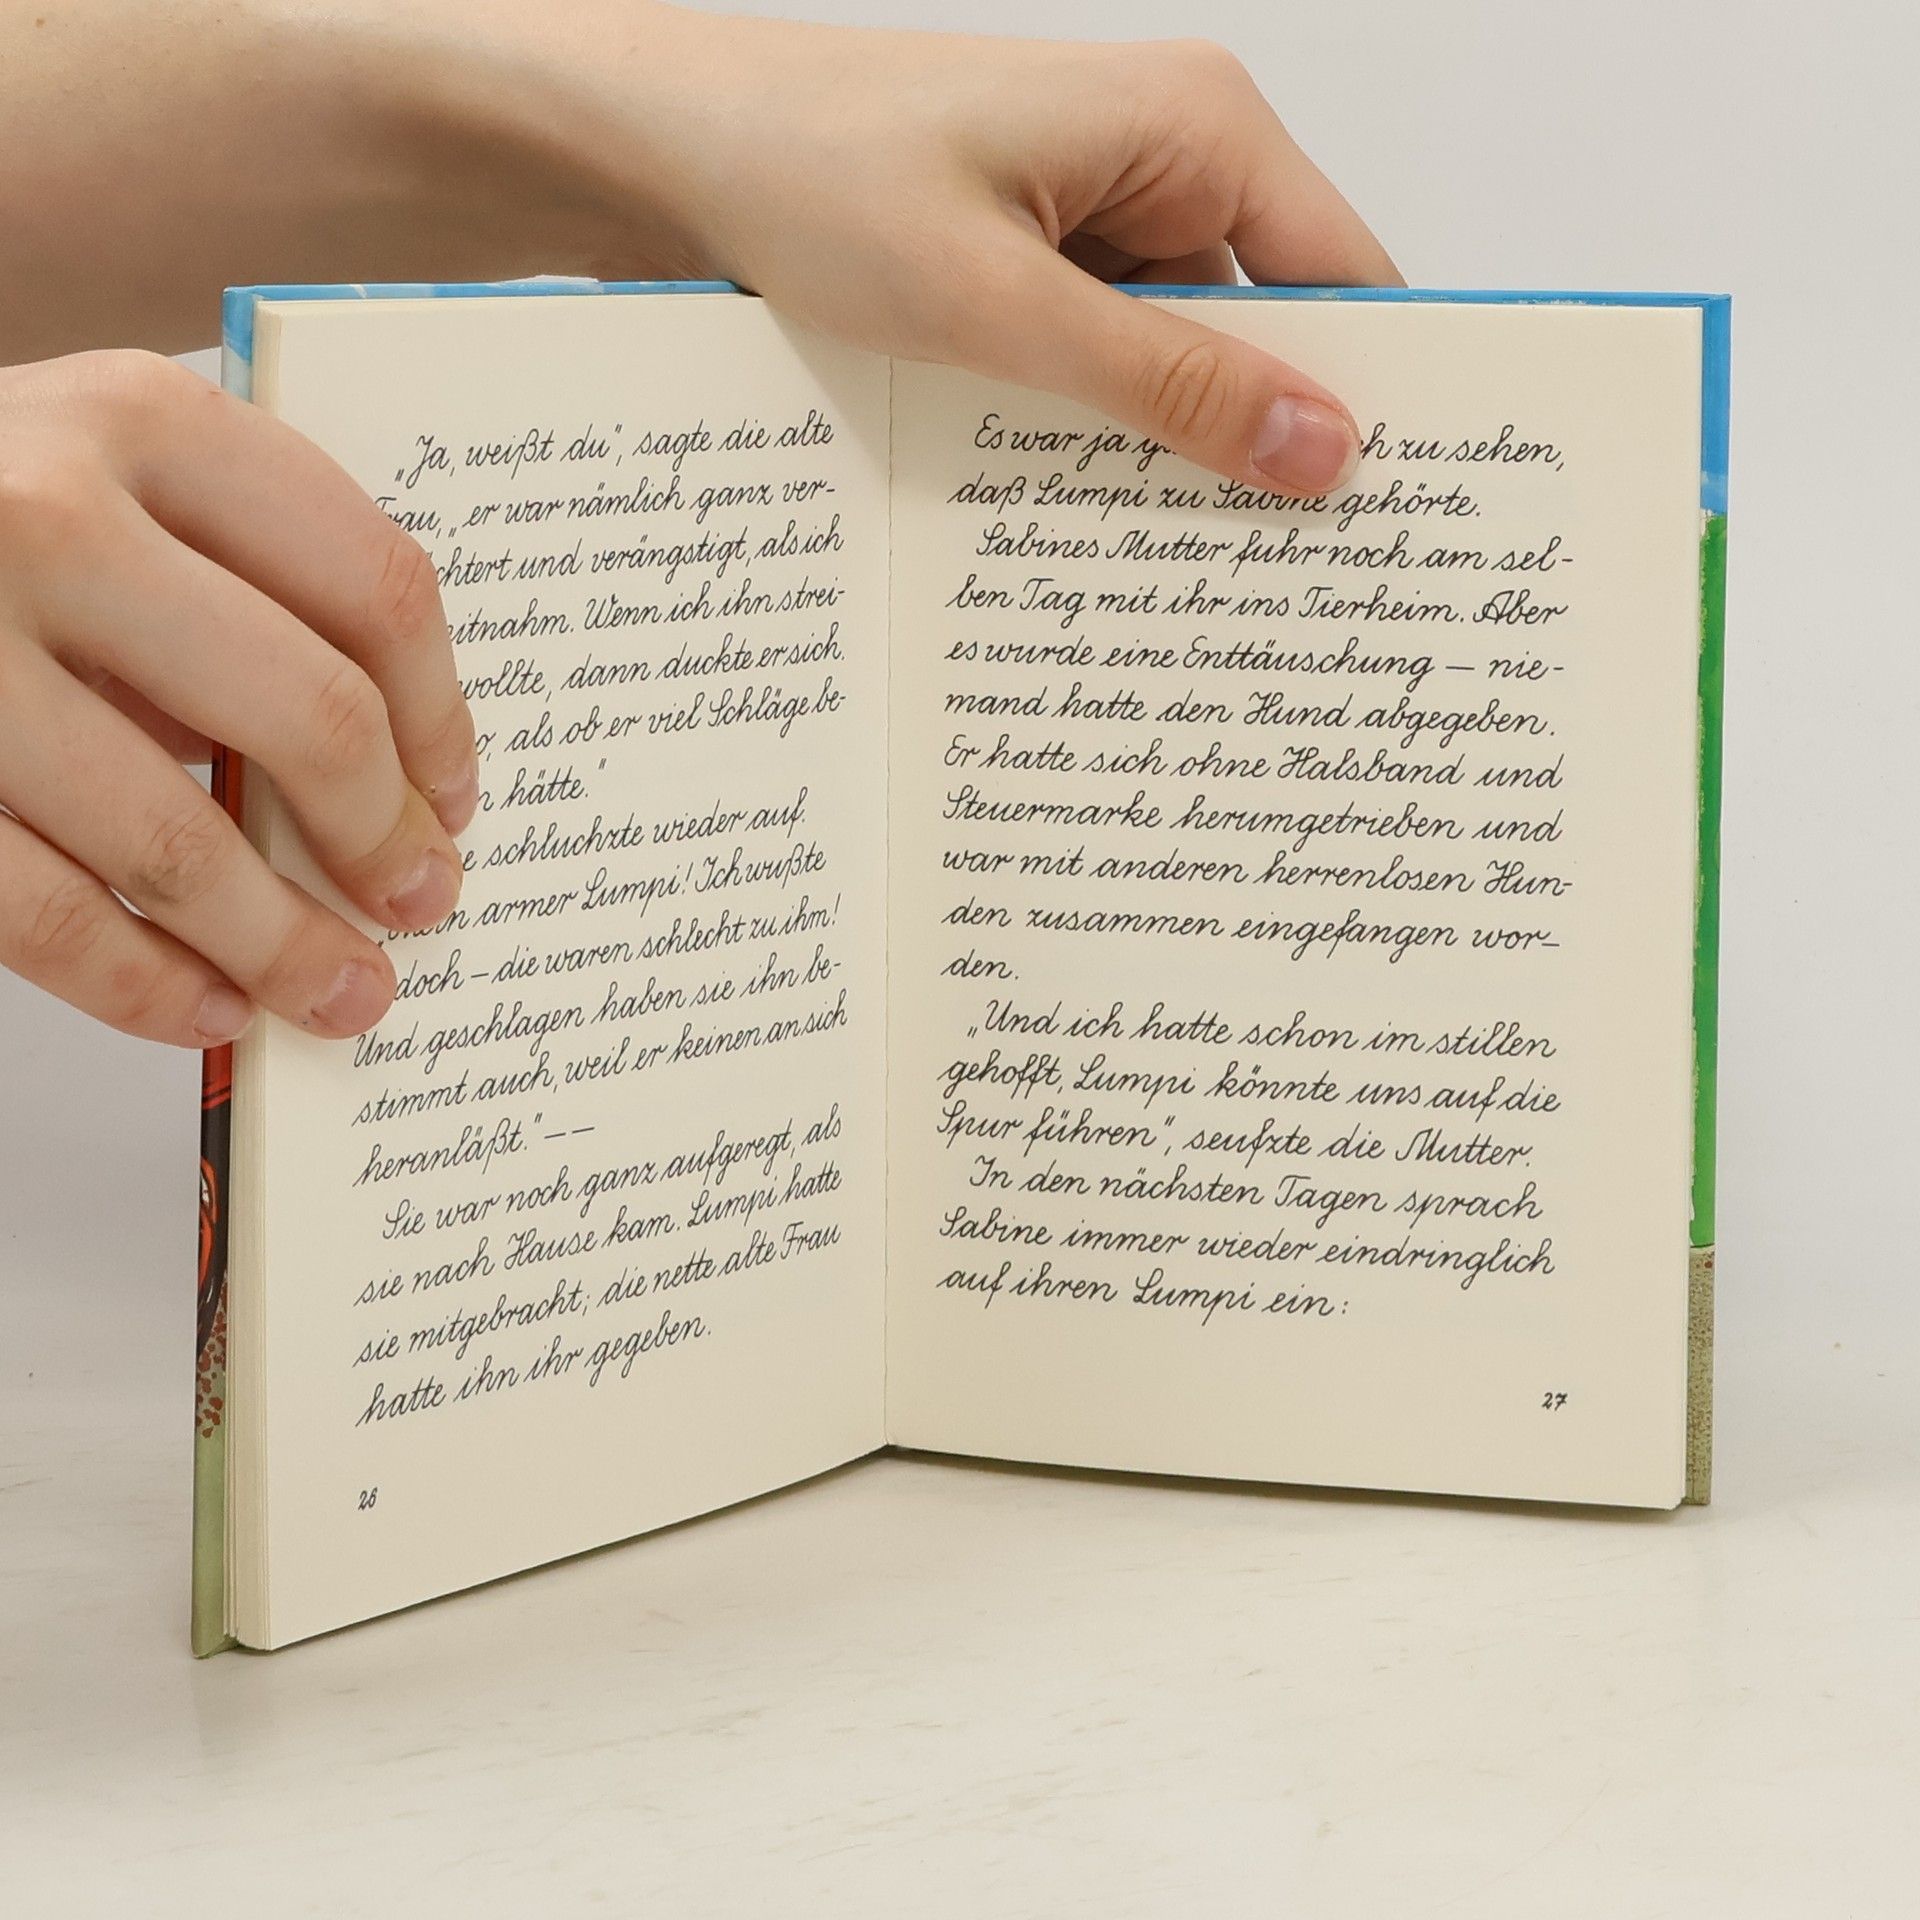 „Ja, weißt du", sagte die alte
Frau, „er war nämlich ganz ver-
und verängstigt, als ich
Wenn ich ihn strei-
wollte, dann duckte er sich.
als ob er viel Schläge be-
hätte."
schluchzte wieder auf.
armer Lumpi! Ich wußte
doch – die waren schlecht zu ihm!
Und geschlagen haben sie ihn be-
stimmt auch, weil er keinen an sich
heranläßt." – –
Sie war noch ganz aufgeregt, als
sie nach Hause kam. Lumpi hatte
sie mitgebracht; die nette alte Frau
hatte ihn ihr gegeben.
26
Es war ja zu sehen,
daß Lumpi zu Sabine gehörte.
Sabines Mutter fuhr noch am sel-
ben Tag mit ihr ins Tierheim. Aber
es wurde eine Enttäuschung – nie-
mand hatte den Hund abgegeben.
Er hatte sich ohne Halsband und
Steuermarke herumgetrieben und
war mit anderen herrenlosen Hun-
den zusammen eingefangen wor-
den.
„Und ich hatte schon im stillen
gehofft, Lumpi könnte uns auf die
Spur führen", seufzte die Mutter.
In den nächsten Tagen sprach
Sabine immer wieder eindringlich
auf ihren Lumpi ein:
27